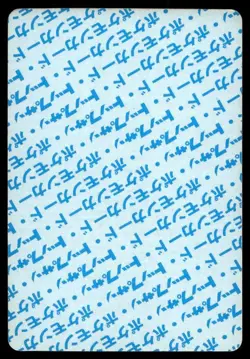 ポケモンカード・
トップサン・ポケモンカード・
トップサン・ポケモンカード・
トップサン・ポケモンカード・
トップサン・ポケモンカード・
トップサン・ポケモンカード・
トップサン・ポケモンカード・
トップサン・ポケモンカード・